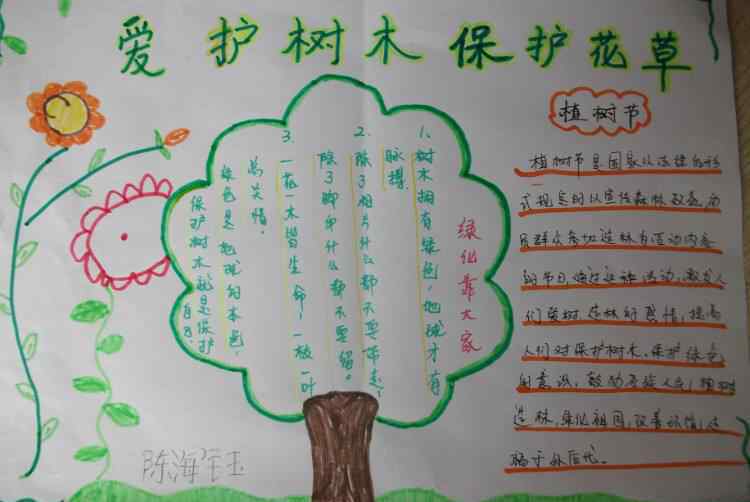 爱护树木保护花草
绿化靠大家
1、树木拥有绿色，地球才有
脉搏。
2、除了相片什么都不要带走，
除了脚印什么都不要留。
3、一花一木皆生命，一枝一叶
总关情。
绿色是地球的本色，
保护树木就是保护
自己。
植树节
植树节是国家以法律的形
式规定的以宣传森林效益，动
员群众参加造林为活动内容
的节日，通过这种活动，激发人
们爱树造林的热情，提高
人们对保护树木，保护绿色
的意识，鼓励
造林，绿化祖国，改善环境，造
福子孙后代。